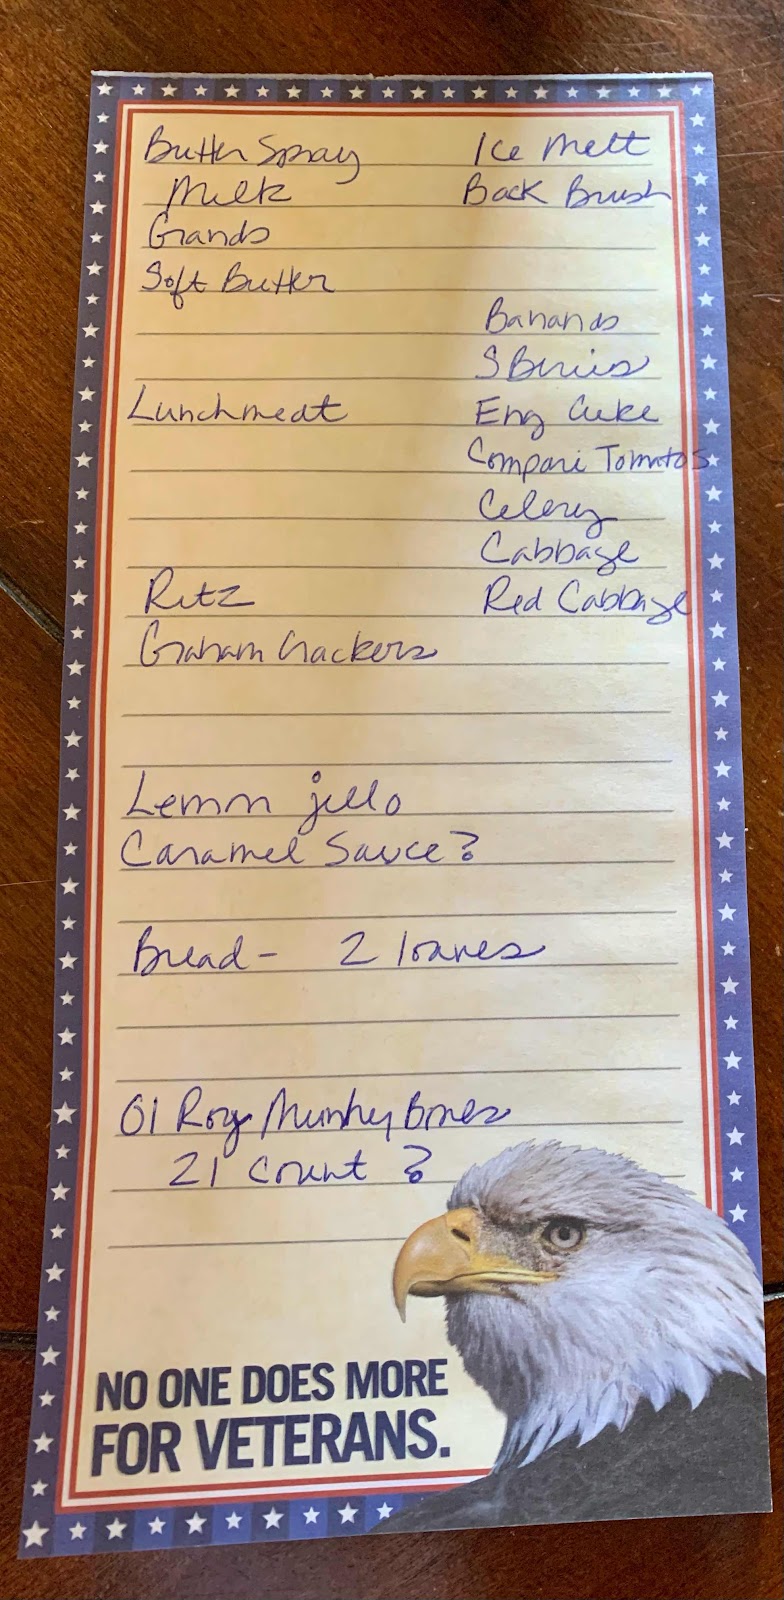 Butter Spray
Milk
Grands
Soft Butter
Lunchmeat
Ritz
Graham Crackers
Lemon jello
Caramel Sauce?
Bread - 2 loaves
Ol Roy Munchy Bones
21 Count ?
Ice Melt
Back Brush
Bananas
S Berries
Eng Cuke
Compari Tomatos
Celery
Cabbage
Red Cabbage
NO ONE DOES MORE
FOR VETERANS.